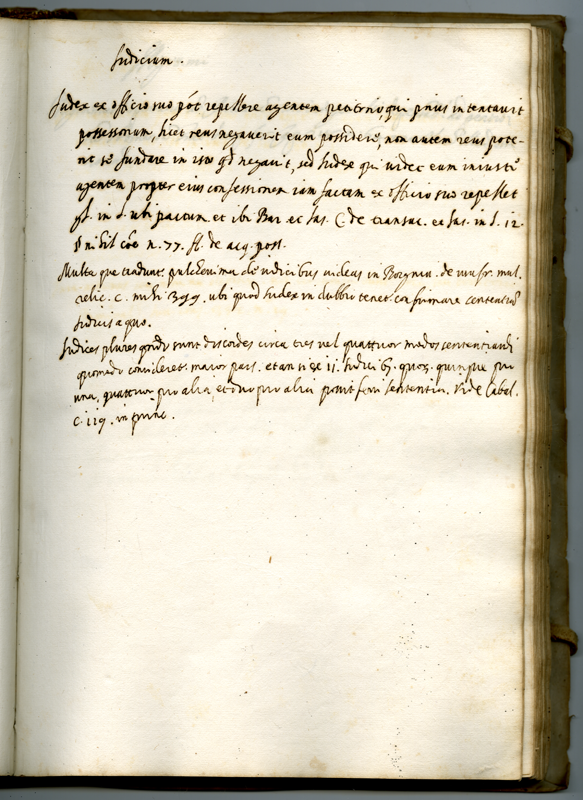 Iudicium.
Iudex ex officio suo pót repellere agentem petitorio, qui prius intentavit
possessorium, licet reus negaverit eum possidere, non autem reus pote-
rit se fundare in isto qd negavit, sed Iudex qui videt eum iniuste
agentem propter eius confessionem iam factam ex officio suo repellet
in l. ubi pactum et ibi Bar. et Ias. C. de transac. et Ias. in l. 12.
§ nihil cõe n. 77. ff. de acq. poss.
Multa que tradunt. pulcherrima de iudicibus videas in de usufr. mul.
relic. c. mihi 399. ubi quod Iudex in dubbio tenet. confirmare sententiã
Iudicis a quo.
Iudices plures qñdo sunt discordes circa tres vel quattuor modos sententiandi
quomodo consideret. maior pars. et an si ex 11. Iudicib. quoq. quinque pro
una, quattuor pro alia, et duo pro alia possit ferri sententia. Vide Cabal.
c. 119. in princ.